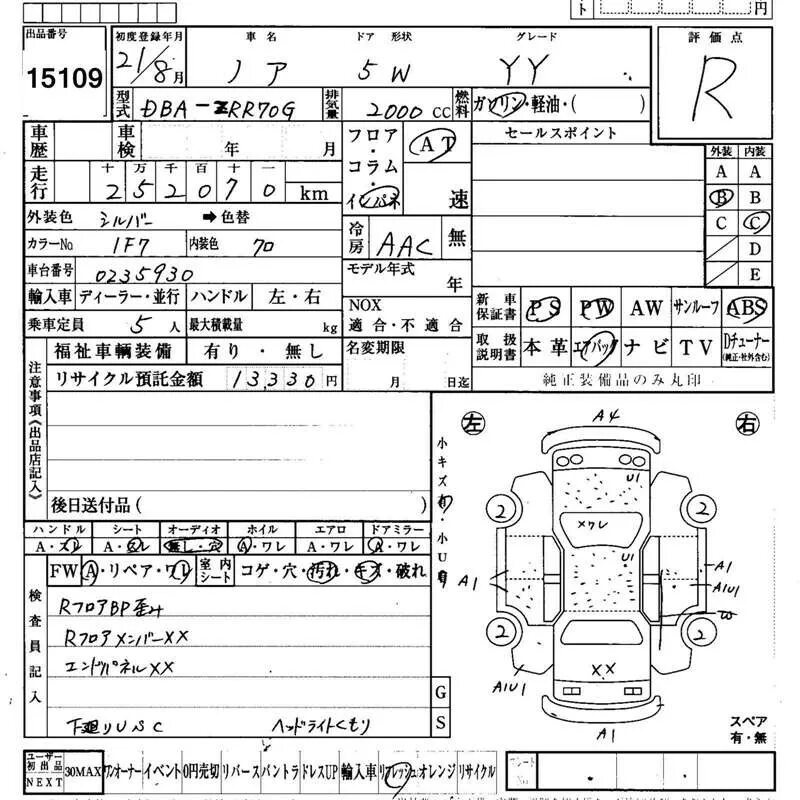 ト 円
出品番号 初度登録年月 車名 ドア 形状 グレード 評価点
15109 21/8月 ノア 5W YY R
型式 DBA-ZRR70G 排気量 2000cc 燃料 ガソリン・軽油・( )
車歴 車検 年 月 フロア・コラム・インパネ AT 速 セールスポイント 外装 内装
A A
B B
C C
D
E
走行 十 万 千 百 十 一
252070 km
外装色 シルバー ➡色替 冷房 AAC 無
カラーNo 1F7 内装色 70
車台番号 0235930 モデル年式 年
輸入車 ディーラー・並行 ハンドル 左・右 NOX 適合・不適合 新車保証書 PS PW AW サンルーフ ABS
乗車定員 5人 最大積載量 kg
福祉車輌装備 有り・無し 名変期限 月 日迄 取扱説明書 本革 エアバッグ ナビ TV Dチューナー
(純正・社外含む)
リサイクル預託金額 13,330円 純正装備品のみ丸印
注意事項《出品店記入》
後日送付品( )
ハンドル シート オーディオ ホイル エアロ ドアミラー
A・スレ A・スレ 無し・穴 A・ワレ A・ワレ A・ワレ
FW A・リペア・ワレ 室内シート コゲ・穴・汚れ・キズ・破れ
検査員記入
RフロアBP歪み
RフロアメンバーXX
エンドパネルXX
下廻りUSC ヘッドライトくもり
G
S
小キズ有・小U有
左 右
A4
U1
メワレ
U1
2 2
A1 A1
A1U1
W
2 2
XX
A1U1
A1
スペア
有・無
ユーザー初出品 NEXT 30MAX ワンオーナー イベント 0円売切 リバース バントラ ドレスUP 輸入車 リフレッシュ オレンジ リサイクル
シートNo.